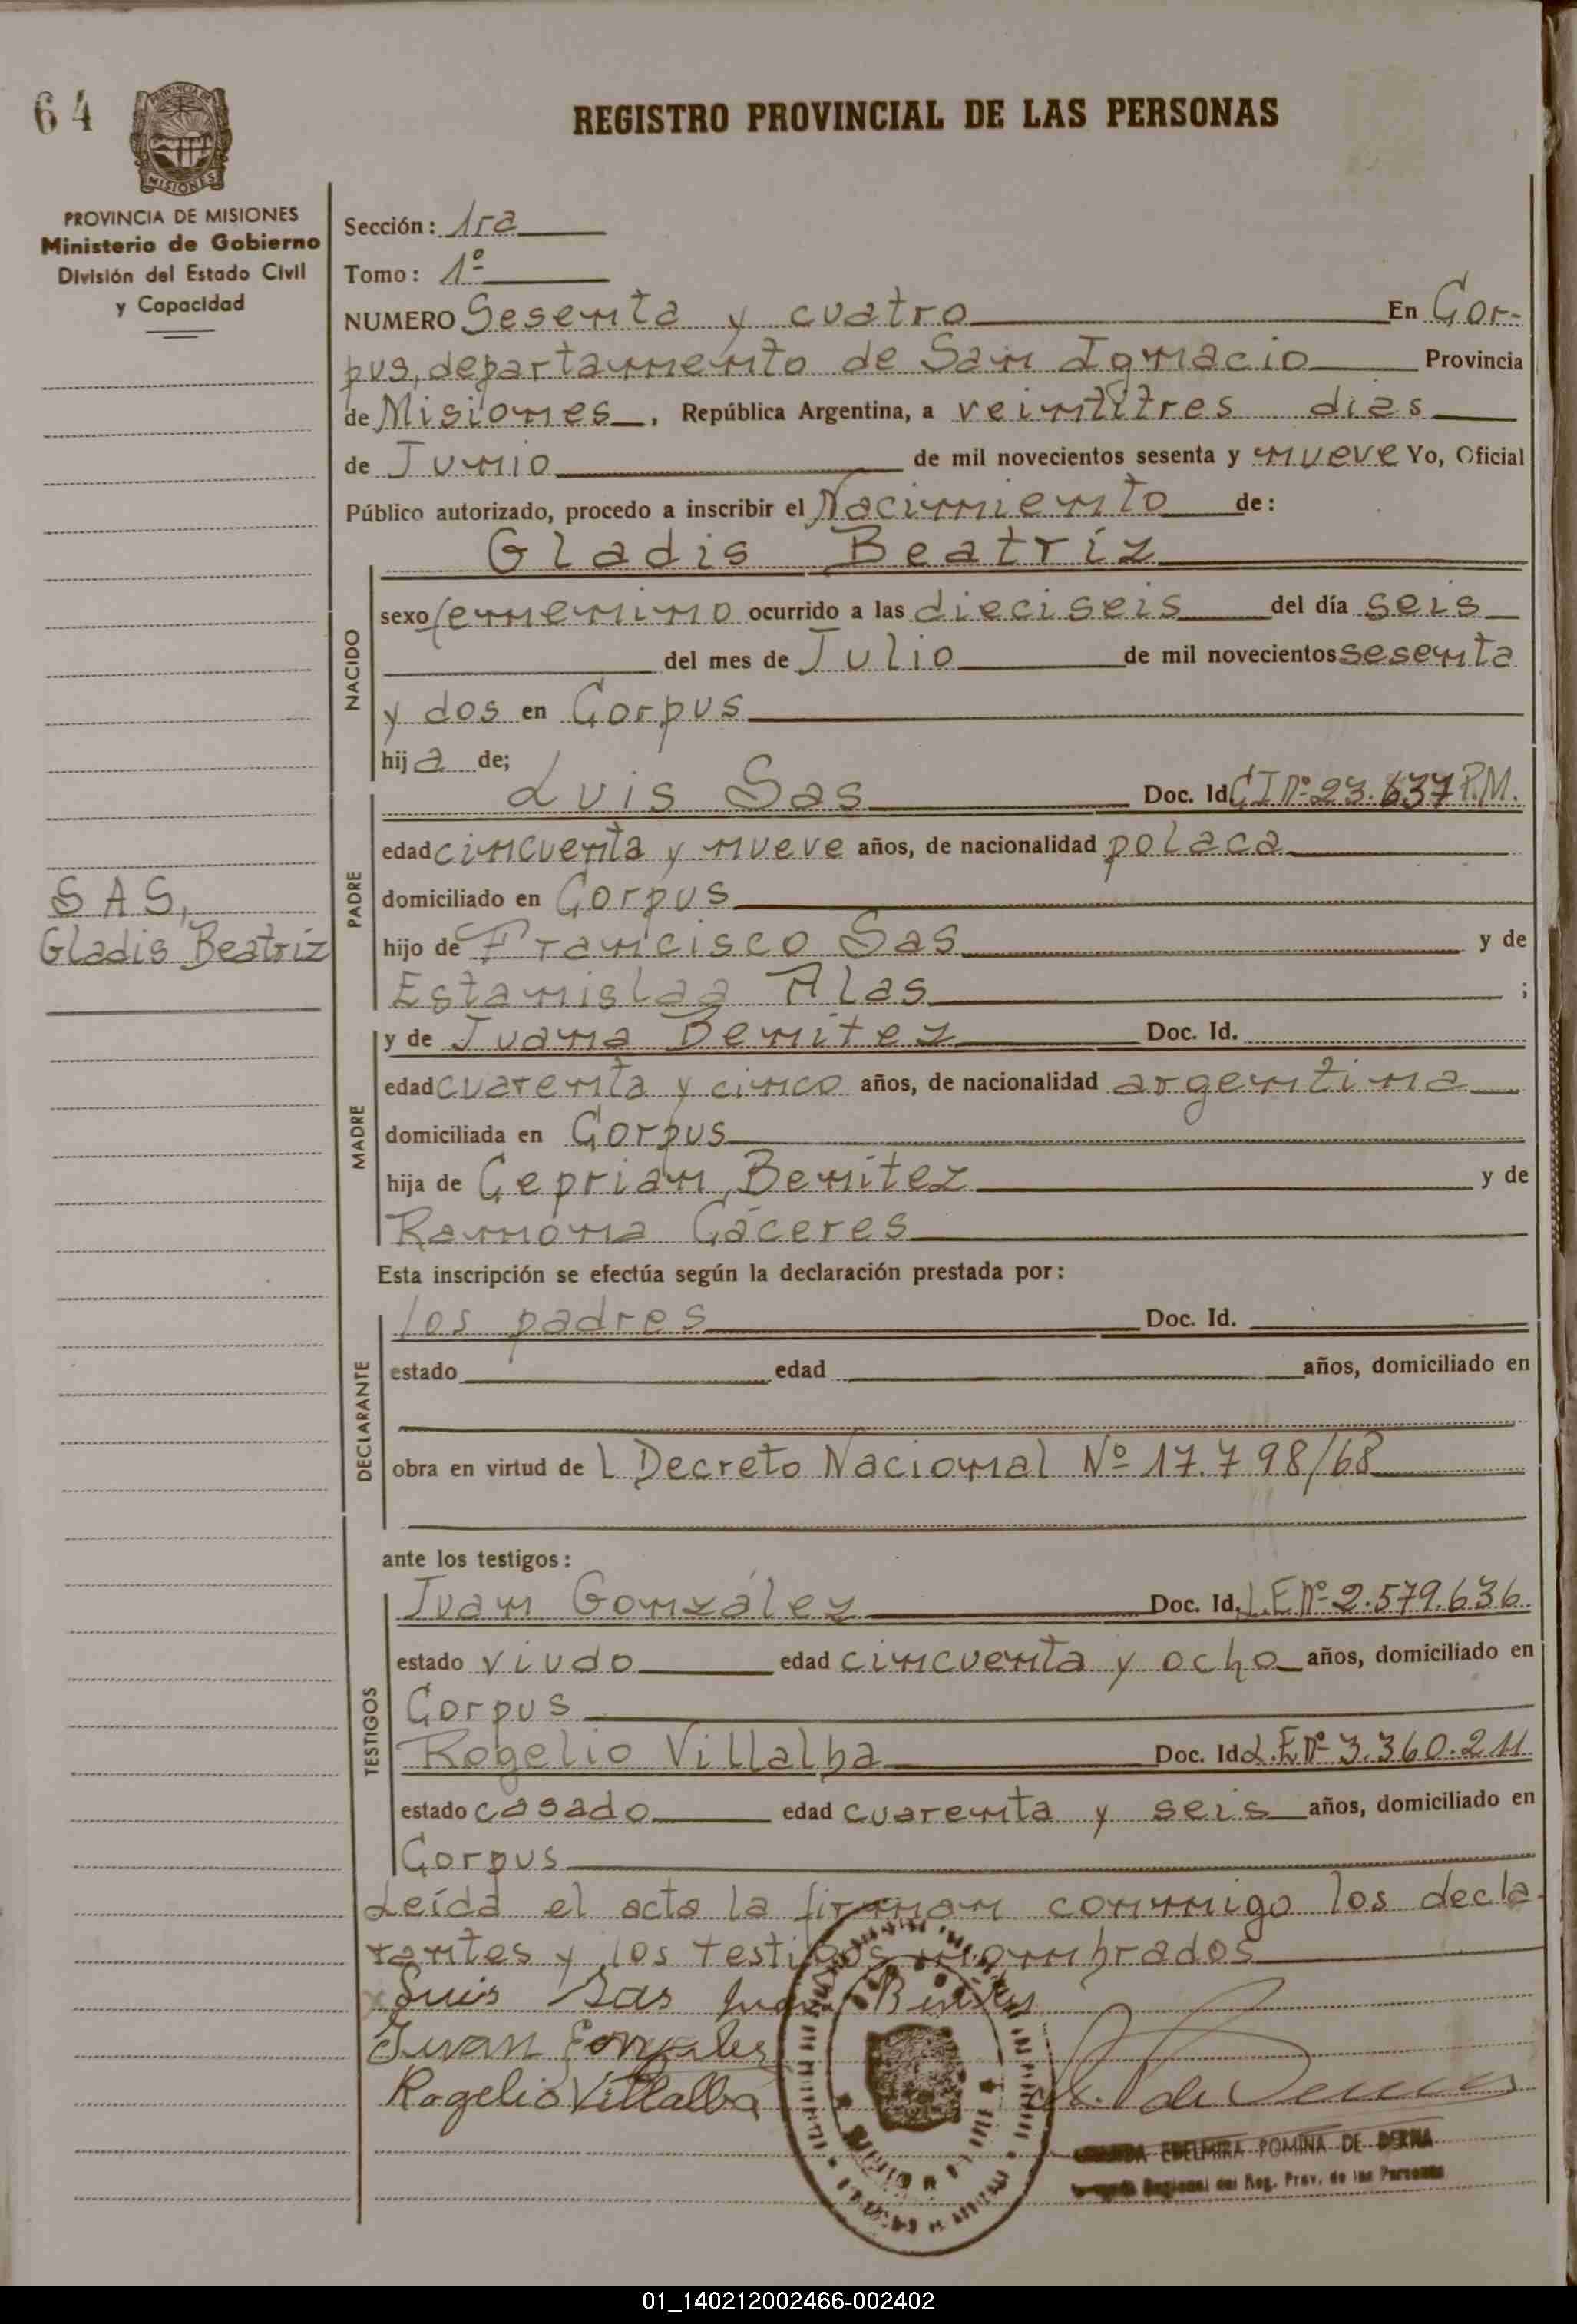 64
REGISTRO PROVINCIAL DE LAS PERSONAS
PROVINCIA DE MISIONES
MISIONES
PROVINCIA DE MISIONES
Ministerio de Gobierno
División del Estado Civil
y Capacidad
Sección: 1ra
Tomo: 1º
NUMERO Sesenta y cuatro En Cor-
pus, departamento de San Ignacio Provincia
de Misiones, República Argentina, a veintitres dias
de Junio de mil novecientos sesenta y nueve Yo, Oficial
Público autorizado, procedo a inscribir el Nacimiento de:
Gladis Beatríz
NACIDO
sexo femenino ocurrido a las dieciseis del día seis
del mes de Julio de mil novecientos sesenta
y dos en Corpus
hija de;
PADRE
Luis Sas Doc. Id. C I Nº 23.637 P.M.
edad cincuenta y nueve años, de nacionalidad polaca
domiciliado en Corpus
SAS,
Gladis Beatríz
hijo de Francisco Sas y de
Estanislaa Alas ;
MADRE
y de Juana Benitez Doc. Id.
edad cuarenta y cinco años, de nacionalidad argentina
domiciliada en Corpus
hija de Ceprian Benítez y de
Ramóna Cáceres
Esta inscripción se efectúa según la declaración prestada por:
DECLARANTE
los padres Doc. Id.
estado edad años, domiciliado en
obra en virtud de l Decreto Nacional Nº 17.798/68
ante los testigos:
TESTIGOS
Juan González Doc. Id. L.E Nº 2.579.636
estado viudo edad cincuenta y ocho años, domiciliado en
Corpus
Rogelio Villalba Doc. Id L.E Nº 3.360.211
estado casado edad cuarenta y seis años, domiciliado en
Corpus
Leída el acta la firman conmigo los decla-
rantes y los testigos nombrados
Luis Sas
Juan Gonzales
Rogelio Villalba
EDELMIRA POMINA DE
Regional del Reg. Prov. de las Personas
01_140212002466-002402